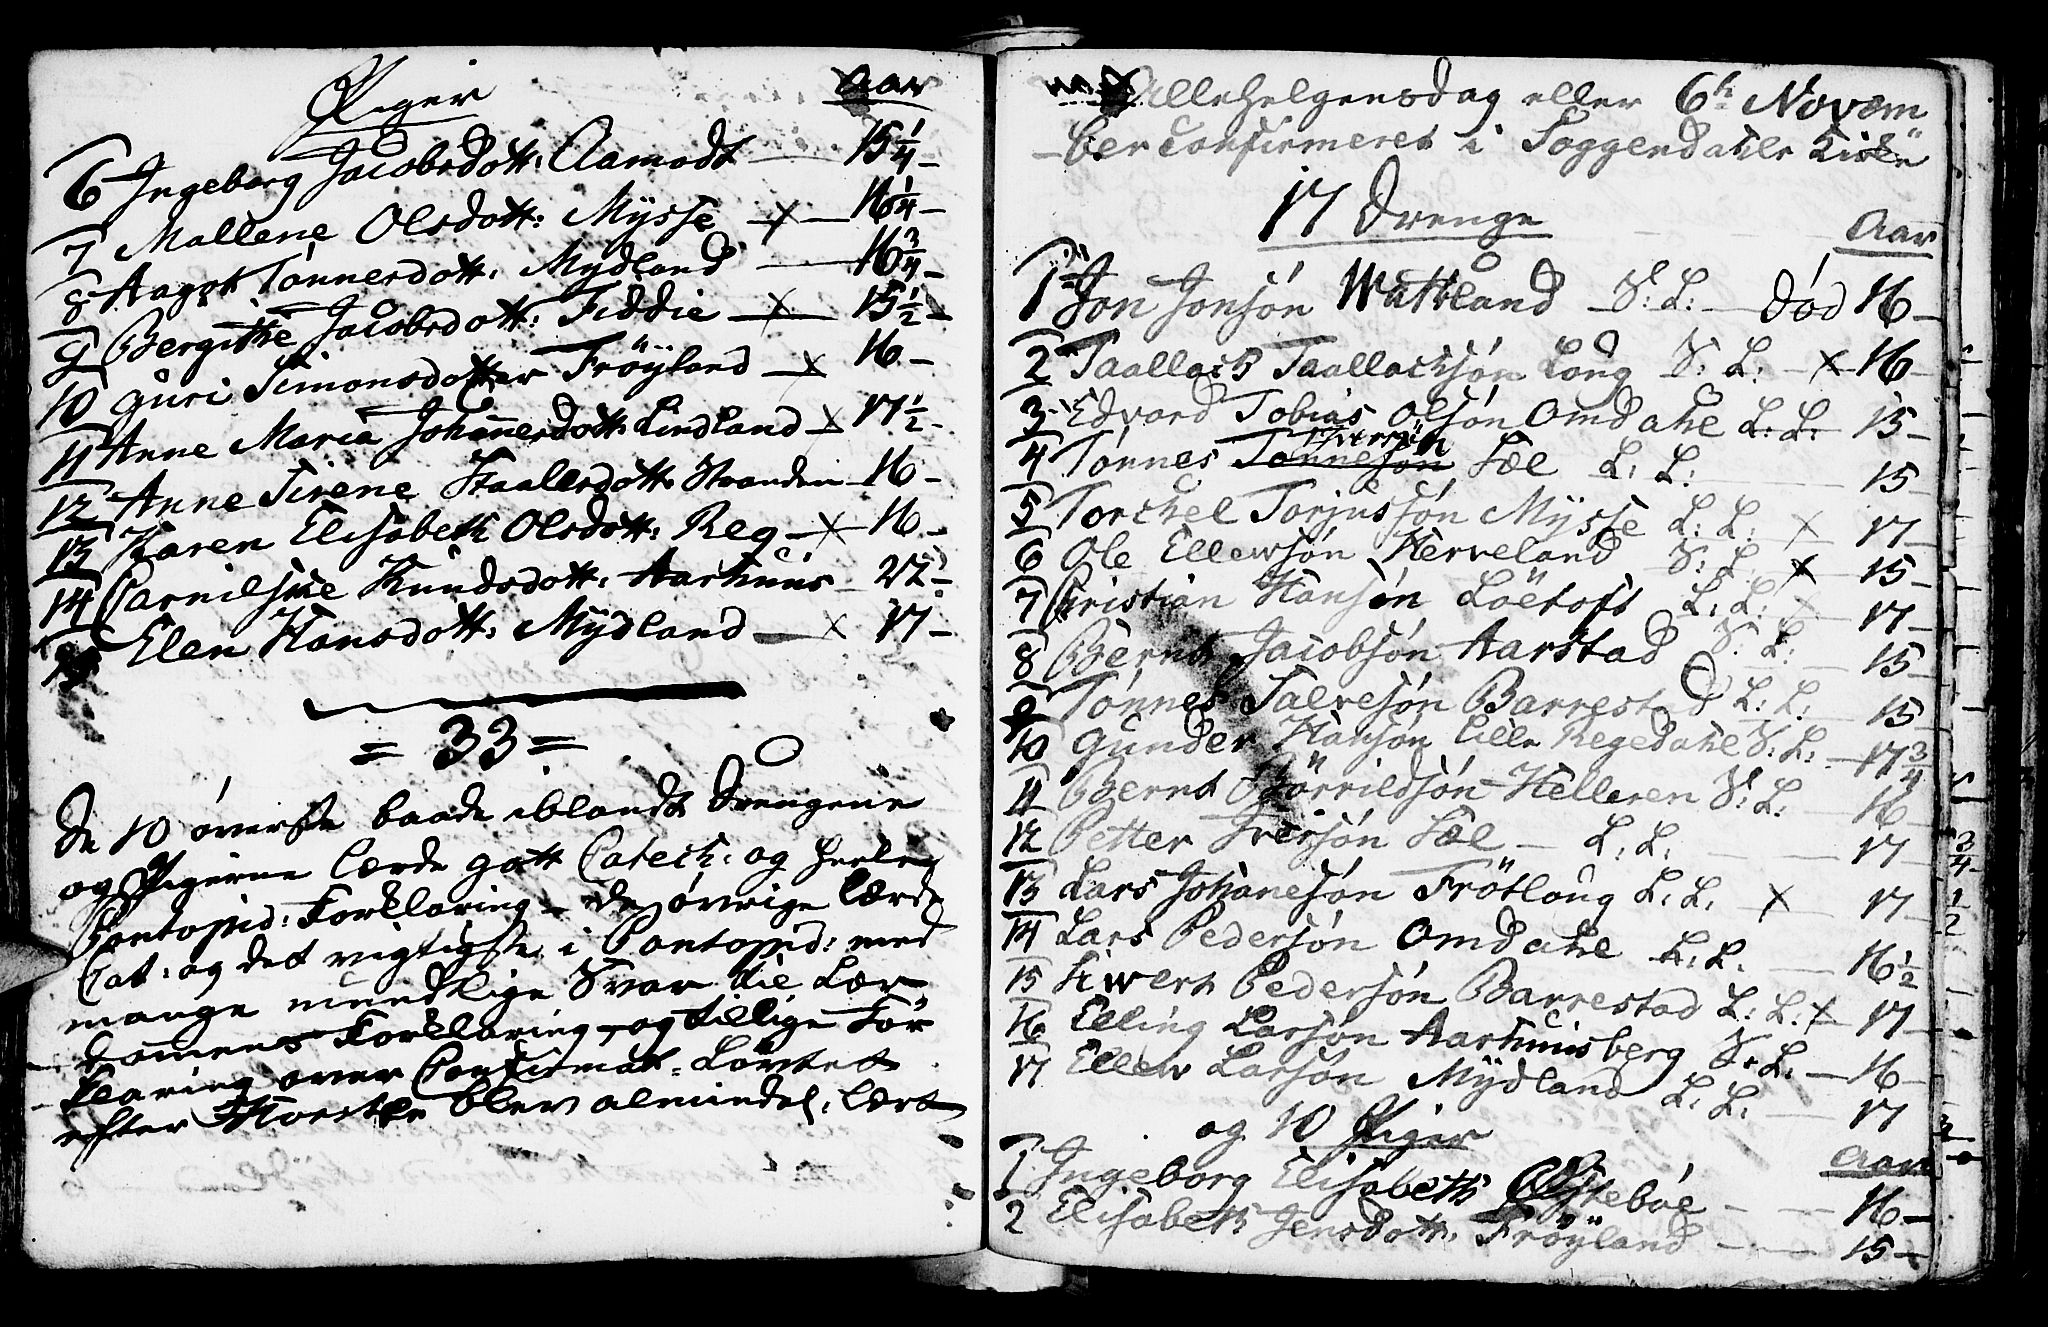 Piger Aar
6 Ingeborg Jacobsdott: Aamodt — 15 1/4 –
7 Mallene Olsdott: Mysse – x – 16 1/4 –
8 Aagot Tønnesdott: Mydland — 16 3/4 –
9 Bergithe Jacobsdott: Fiddie – x – 15 1/2 –
10 Guri Simonsdotter Frøyland – x 16 –
11 Anne Maria Johannesdott: Lindland – x 17 1/2 –
12 Anne Sirene Staalesdott: Stranden – 16 –
13 Karen Elisabeth Olsdott: Reg – x – 16 –
14 Knudsdott: Aarhuus – 22 1/2
15 Elen Hansdott: Mydland – x 17 –
= 33 =
De 10 øverste baade iblandt Drengene
og Pigerne lærde gott Catech: og heele
Pontopid: Forklaring – de øvrige lærde
Cat: og det vigtigste i Pontopid: med
mange mundtlige Svar til Lær-
domens Forklaring – og tillige For
klaring over Confirmat: Løvtet
efter blev almindel: lært
Allehelgensdag eller 6te Novem
– ber confirmeret i Soggendahls Kirke
17 Drenge Aar
1 Jon Jonsøn Wattland S: L: — død 16 –
2 Taallack Taallacksøn Long S: L: – x – 16 –
3 Edvard Tobias Olsøn Omdahl L: L: 15 –
4 Tønnes Tønnesøn Iversøn Sæl L: L: 15 –
5 Torchel Torjussøn Mysse L: L: x 17 –
6 Ole Ellewsøn Herveland S: L: x 15 –
7 Christian Hansøn Løetoft L: L: x 17 –
8 Bernt Jacobsøn Aarstad S: L: 15 –
9 Tønnes Salvesøn Barrestad L: L: 15
10 Gunder Hansøn Lille Regedahl S: L: – 17 3/4
11 Bernt Helleren S: L: 16 –
12 Petter Iversøn Sæl – L: L: 17 –
13 Lars Johanesøn Frøtlong L: L: x 17 –
14 Lars Pedersøn Omdahl L: L: — 16 1/2
15 Siwert Pedersøn Barrestad L: L: x 17 –
16 Elling Larsøn Aarhuusberg S: L: — 16 –
17 Ellew Larsøn Mydland L: L: — 17
og 10 Piger
Aar
1 Ingeborg Elisabeth – — 16 –
2 Elisabeth Jensdott: Frøyland – — 15 –